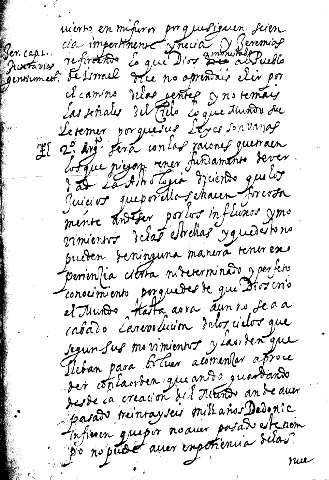 vierto en mi furor porque siguen scien
cia impertinente y necia y Jeremias
Jer. cap. 1.
Juxta vias
gentium etc.
refiriendo lo que Dios amonestaba a su Pueblo
de Israel dice no aprendais el ir por
el camino de las gentes y no temais
las señales del Cielo lo que el Mundo su
ele temer porque sus Leyes son vanas
El 2º Arg. sera con las raçones que traen
los que niegan tener fundamento de ver
dad La Astrologia diciendo que los
Juicios que por ella se hacen forcosa
mente an de ser por los influxos y mo
vimientos de las estrellas y que desto no
pueden de ninguna manera tener ex
periencia cierta ni determinado y perfeto
conocimiento porque desde que Dios crio
el Mundo hasta aora aun no se a a
cabado La revolucion de los cielos que
segun sus movimientos y la orden que
lleban para bolver a comenzar a proce
der con la orden que an do guardando
desde la creacion del Mundo an de aver
pasado treinta y seis mill años De donde
infieren que por no aver pasado este tiem
po no puede aver experiencia de las
nue